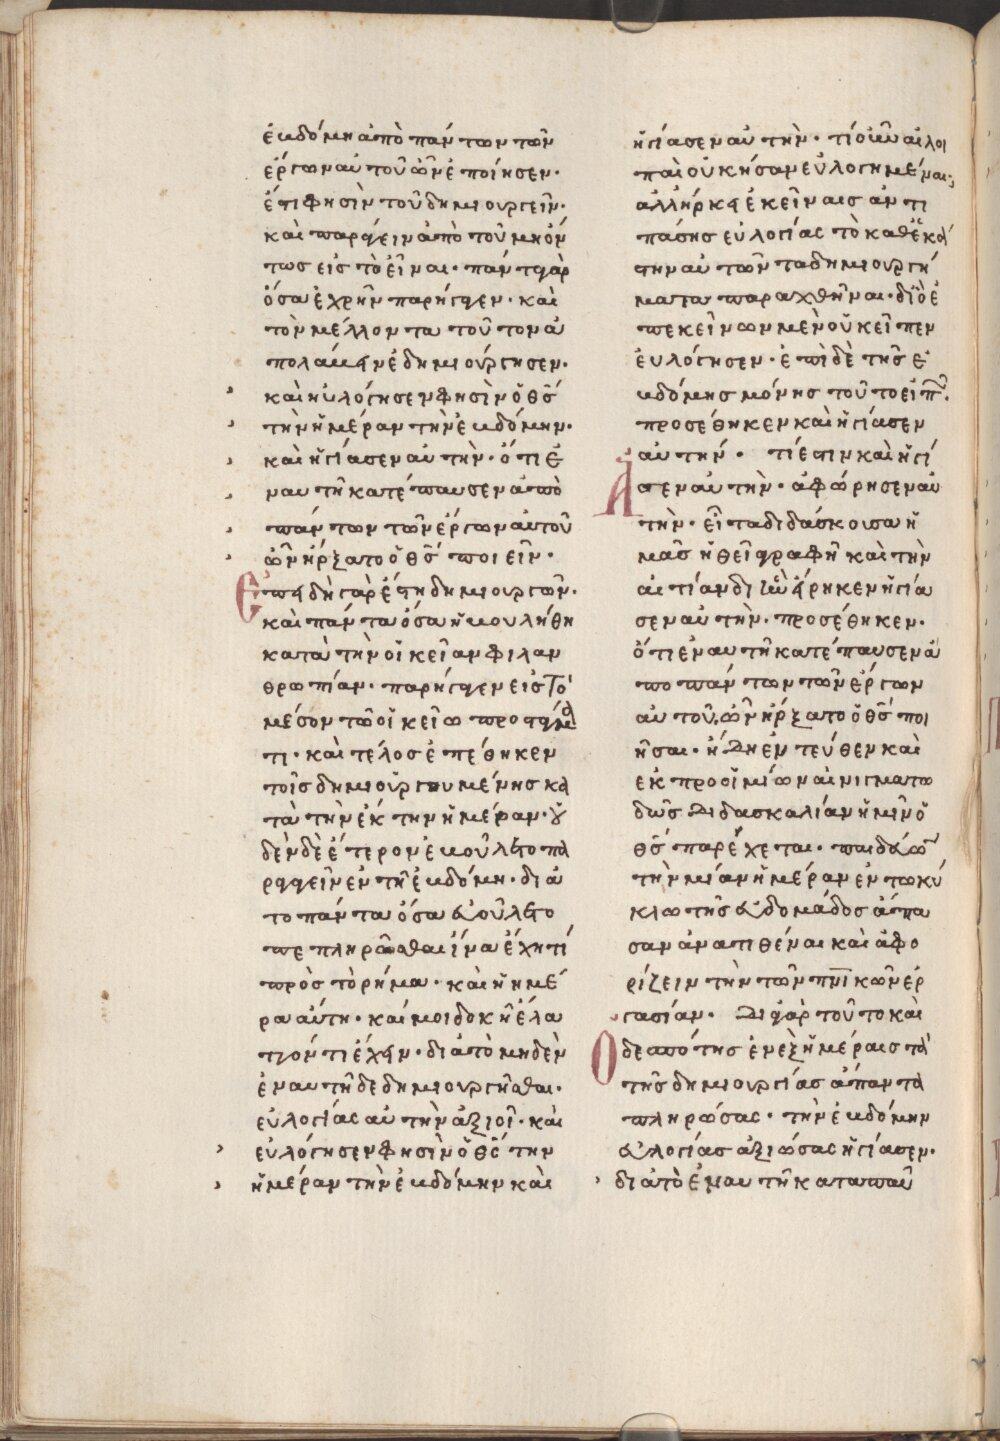 ἑβδόμη ἀπὸ πάντων τῶν
ἔργων αὐτοῦ ὧν ἐποίησεν·
ἔστι φησὶν τοῦ δημιουργεῖν·
καὶ παράγειν ἀπὸ τοῦ μὴ ὄν
τως εἰς τὸ εἶναι· πάντα γὰρ
ὅσα ἐχρῆν παρήγαγεν· καὶ
τὸν μέλλοντα τούτον ἀ
πολαύειν ἐδημιούργησεν·
καὶ ηὐλόγησεν φησὶν ὁ θς
τὴν ἡμέραν τὴν ἑβδόμην·
καὶ ἡγίασεν αὐτὴν· ὅτι ἐ
ν αυτῆ κατέπαυσεν ἀπὸ
πάντων τῶν ἔργων αὐτοῦ
ὧν ἤρξατο ὁ θς ποιεῖν·
Ἐπειδὴ γὰρ ἔστη δημιουργῶν·
καὶ πάντα ὅσα ἠβουλήθη
κατὰ τὴν οἰκείαν φιλαν
θρωπίαν· παρήγαγεν εἰς τὸ
μέσον τῶ οἰκείω προστάγμα
τι· καὶ τέλος ἐπέθηκεν
τοῖς δημιουργουμένης κα
τὰ τὴν ἕκτην ἡμέραν· οὐ
δὲν δὲ ἕτερον ἐβούλετο πα
ράγειν ἐν τῆ ἑβδόμη· διὰ
το πάντα ὅσα ἐβούλετο
πεπληρῶσθαι ἵνα ἔχη τί
πρὸς τὸ ρῆμα· καὶ ἡ ἡμέ
ρα αὕτη· καί μοι δοκῆ ἔλα
ττόν τι ἔχειν· διὰ τὸ μηδὲν
ἐν αυτῆ δεδημιουργῆσθαι·
εὐλογίας αὐτὴν ἀξιοῖ· καὶ
εὐλόγησεν φησὶν ὁ θς την
ἡμέραν τὴν ἑβδόμην καὶ
ἡγίασεν αὐτὴν· τί οὖν αἱ λοι
παὶ οὐκ ἦσαν εὐλογημέναι;
ἀλλ ἤρκει ἐκείναις ἀντι
πάσης εὐλογίας τὸ καθ ἑκά
στην αὐτῶν τα δημιουργή
ματα παραχθῆναι· διὸ ἐ
π ἐκείνων μὲν οὐκ εἶπεν
εὐλόγησεν· ἐπὶ δὲ τῆς ἑ
βδόμης μόνης τοῦτο εἰπ.
προσέθηκεν καὶ ἡγίασεν
αὐτήν· τί ἐστιν καὶ ἡγί
Ασεν αὐτὴν· ἀφώρησεν αὐ
τὴν· εἶτα διδάσκουσα ἡ
μᾶς ἡ θεῖ γραφὴ καὶ τὴν
αἰτίαν δι ὣ εἴρηκεν ἡγία
σεν αὐτὴν· προσέθηκεν·
ὅτι ἐν αυτῆ κατέπαυσεν ἀ
πὸ πάντων τῶν ἔργων
αὐτοῦ, ὧν ἤρξατο ὁ θς ποι
ῆσαι· ἤδη ἐντεύθεν καὶ
ἐκ προοιμίων αἰνιγματω
δῶς διδασκαλίαν ἡμῖν ὁ
θς παρέχεται· παιδεύων
τὴν μίαν ἡμέραν ἐν τω κύ
κλω τῆς ἑβδομάδος ἅπα
σαν ἀνατιθέναι καὶ ἀφο
ρίζειν τὴν τῶν πνικῶν ἐρ
γασίαν· Διὰ γὰρ τοῦτο καὶ
Ο δεσπότης ἐν ἓξ ἡμέραις τὰ
τῆς δημιουργίας ἅπαντα
πληρώσας· τὴν ἑβδόμην
εὐλογίας ἀξιώσας ἡγίασεν·
διὰ τὸ ἐν αυτῆ καταπαῦ